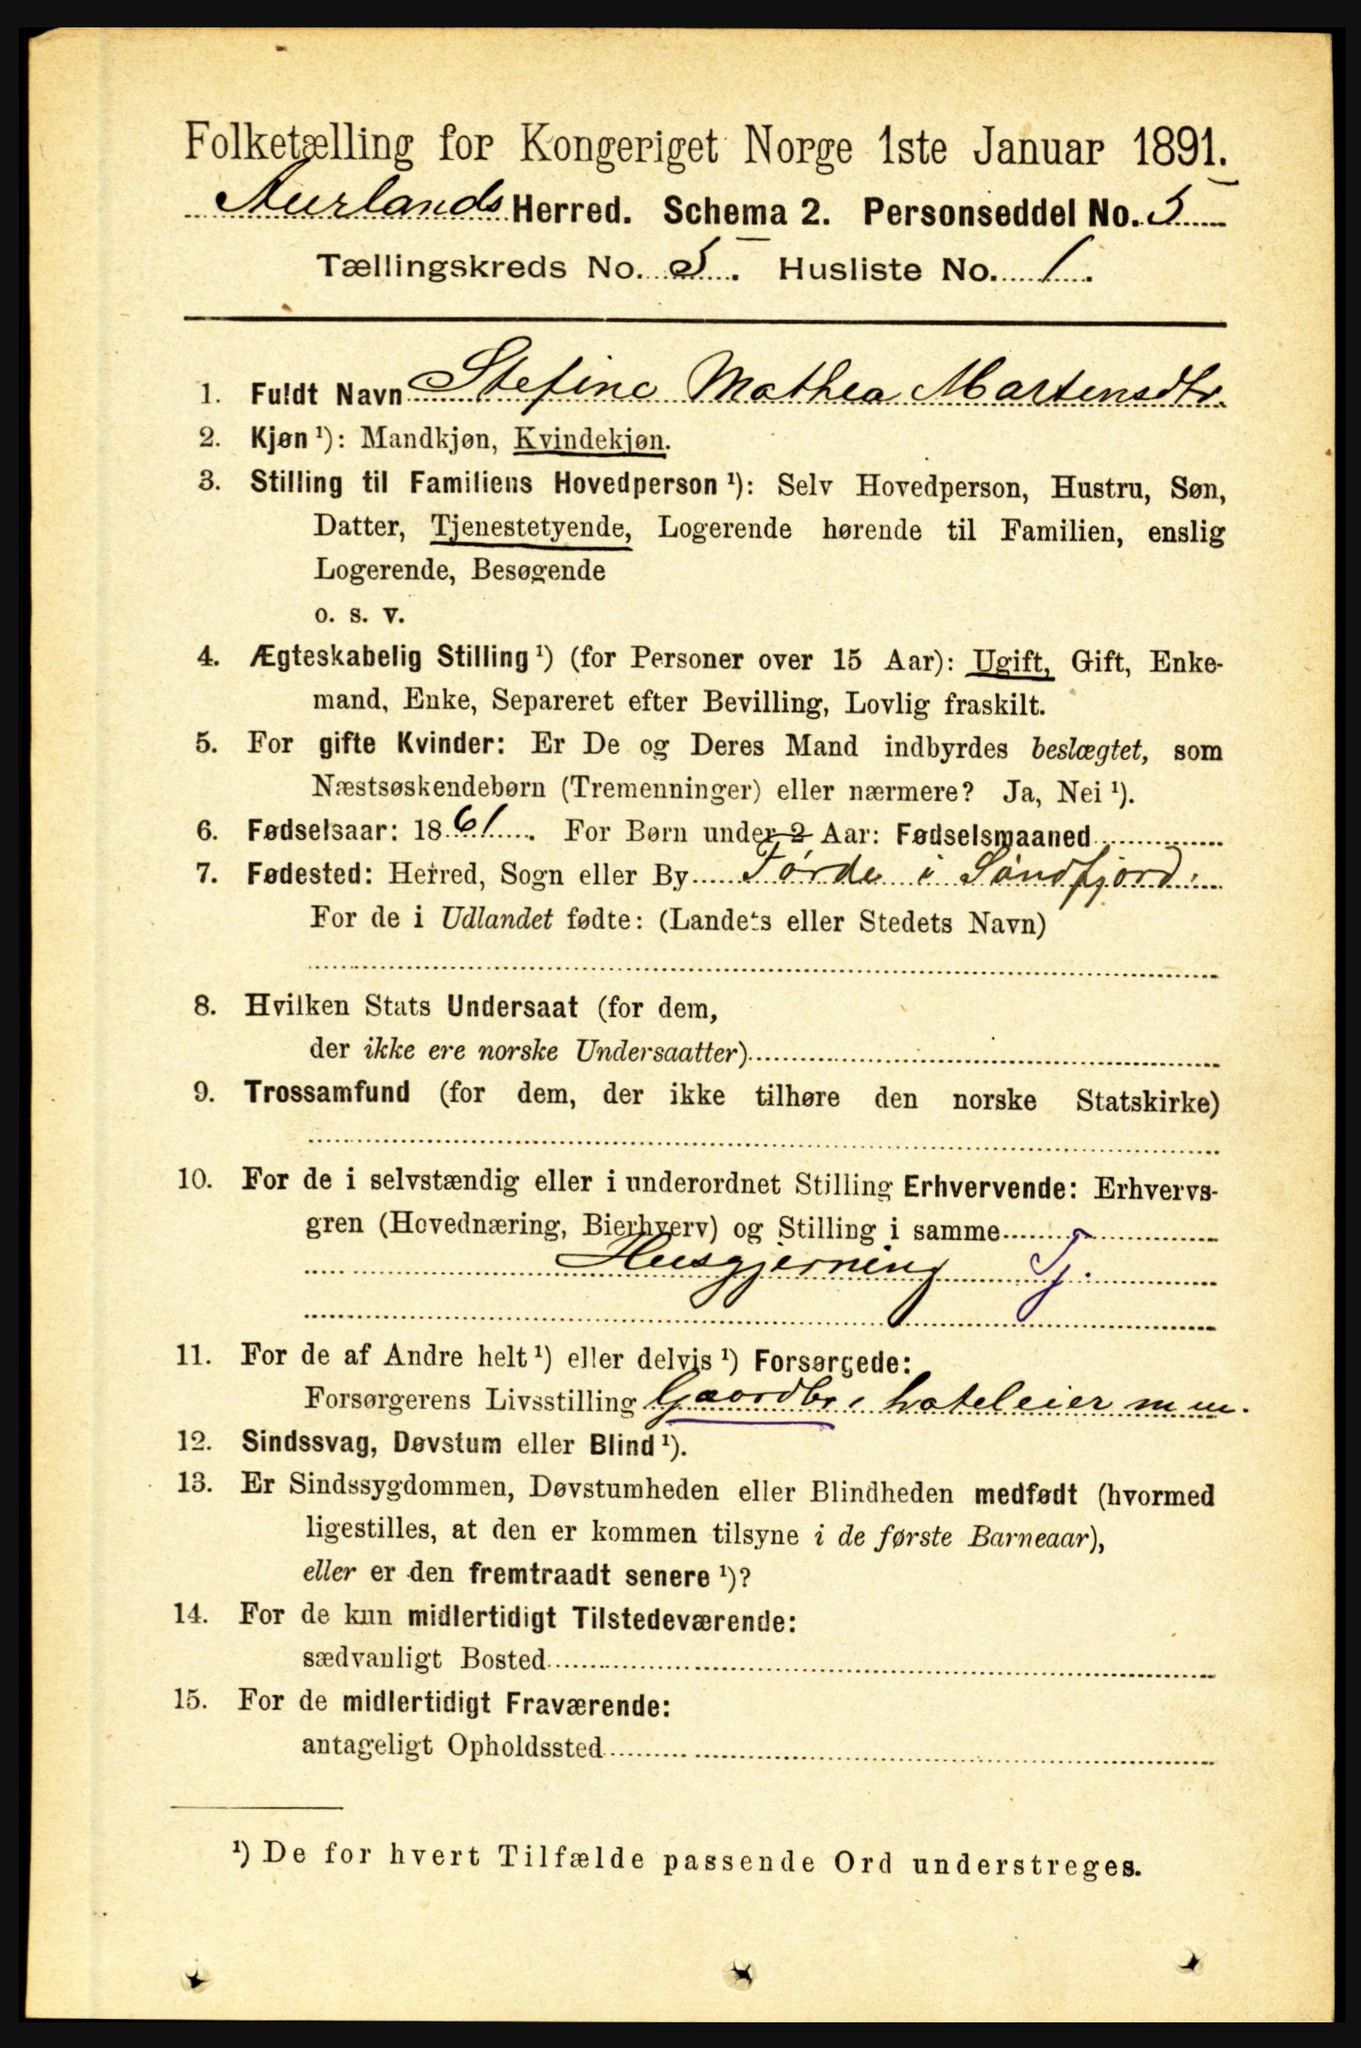 Folketælling for Kongeriget Norge 1ste Januar 1891.
Aurlands Herred. Schema 2. Personseddel No. 5
Tællingskreds No. 5. Husliste No. 1.
1. Fuldt Navn Stefine Mathea Martensdtr.
2. Kjøn ¹): Mandkjøn, Kvindekjøn.
3. Stilling til Familiens Hovedperson ¹): Selv Hovedperson, Hustru, Søn,
Datter, Tjenestetyende, Logerende hørende til Familien, enslig
Logerende, Besøgende
o. s. v.
4. Ægteskabelig Stilling ¹) (for Personer over 15 Aar): Ugift, Gift, Enke-
mand, Enke, Separeret efter Bevilling, Lovlig fraskilt.
5. For gifte Kvinder: Er De og Deres Mand indbyrdes beslægtet, som
Næstsøskendebørn (Tremenninger) eller nærmere? Ja, Nei ¹).
6. Fødselsaar: 1861. For Børn under 2 Aar: Fødselsmaaned
7. Fødested: Herred, Sogn eller By Førde i Søndfjord.
For de i Udlandet fødte: (Landets eller Stedets Navn)
8. Hvilken Stats Undersaat (for dem,
der ikke ere norske Undersaatter)
9. Trossamfund (for dem, der ikke tilhøre den norske Statskirke)
10. For de i selvstændig eller i underordnet Stilling Erhvervende: Erhvervs-
gren (Hovednæring, Bierhverv) og Stilling i samme
Husgjerning Tj.
11. For de af Andre helt ¹) eller delvis ¹) Forsørgede:
Forsørgerens Livsstilling Gaardbr. hoteleier m m.
12. Sindssvag, Døvstum eller Blind ¹).
13. Er Sindssygdommen, Døvstumheden eller Blindheden medfødt (hvormed
ligestilles, at den er kommen tilsyne i de første Barneaar),
eller er den fremtraadt senere ¹)?
14. For de kun midlertidigt Tilstedeværende:
sædvanligt Bosted
15. For de midlertidigt Fraværende:
antageligt Opholdssted
¹) De for hvert Tilfælde passende Ord understreges.